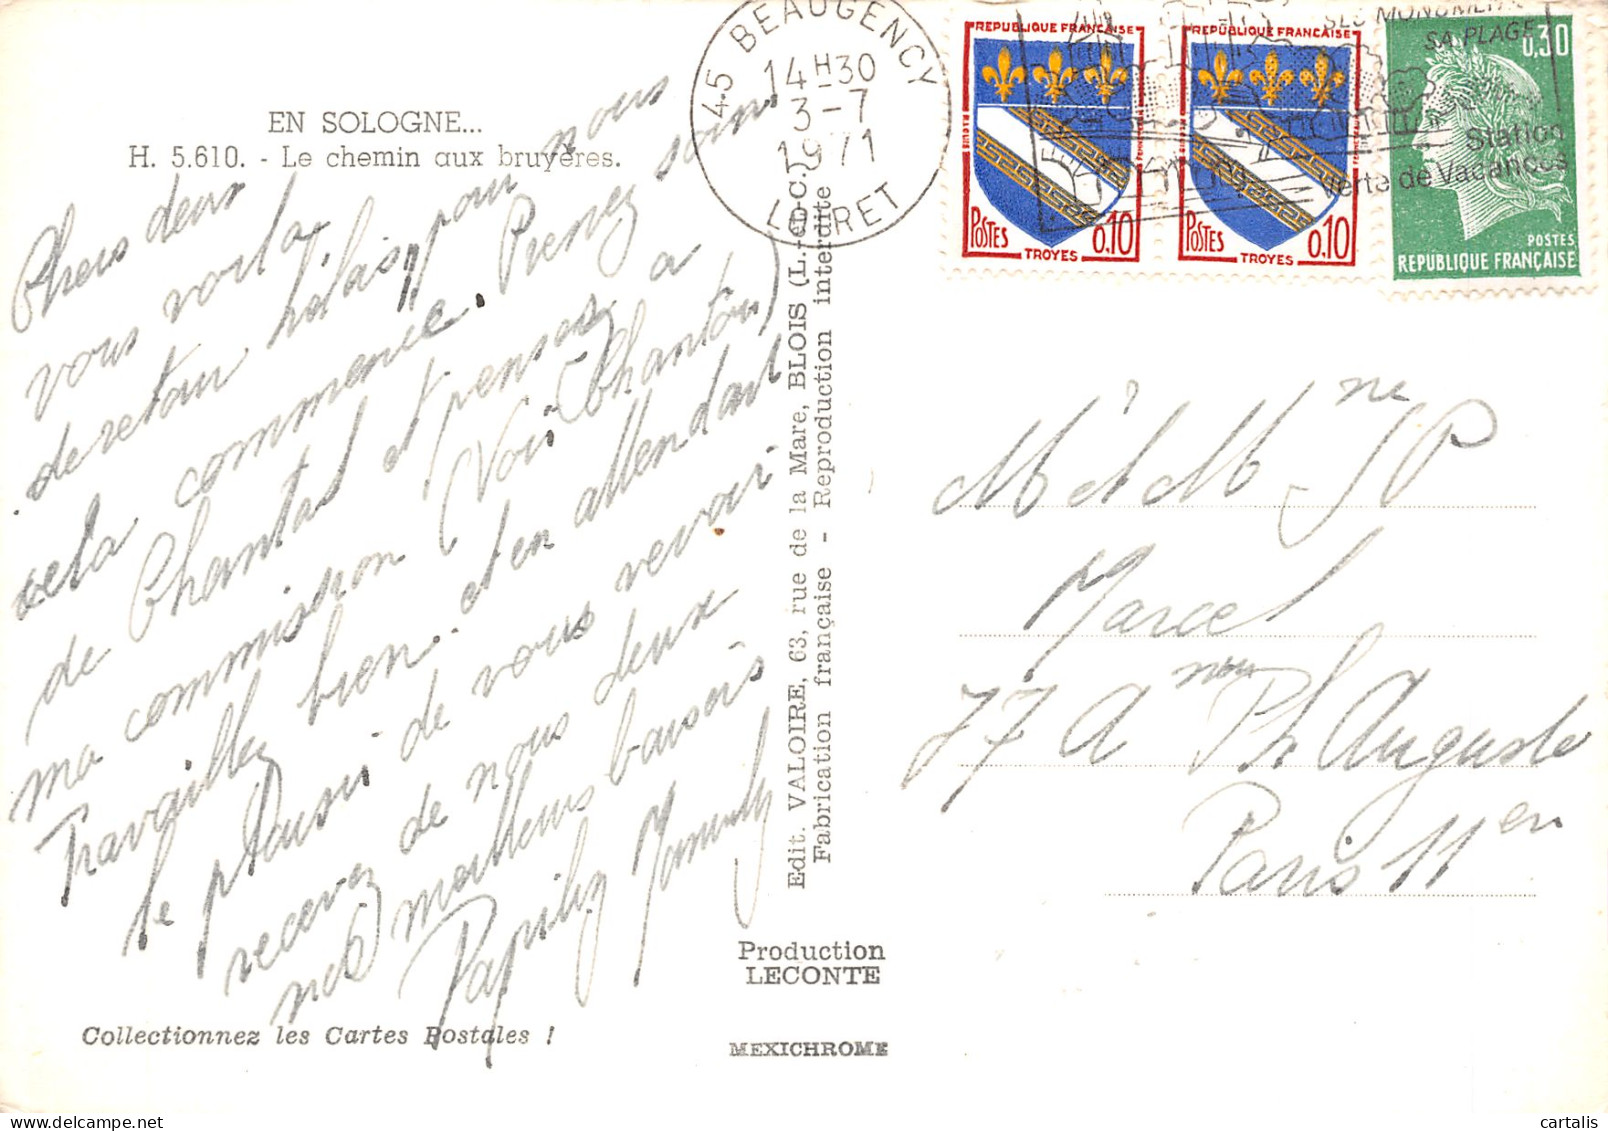 EN SOLOGNE...
H. 5.610. - Le chemin aux bruyères.
Chers deux
vous voila
de retour hélas, pour nous
cela commence. Prenez soin
de Chantal et pensez a
ma commission (Voir Chantou)
Travaillez bien. et en attendant
le plaisir de vous revoir
recevez de nous deux
nos meilleurs baisers
Collectionnez les Cartes Postales !
Edit. VALOIRE, 63, rue de la Mare, BLOIS (L.-&-C.)
Fabrication française - Reproduction interdite
Production
LECONTE
MEXICHROME
45 BEAUGENCY
14H30
3-7
1971
LOIRET
SES MONUMENTS
SA PLAGE
Station
Verte de Vacances
REPUBLIQUE FRANÇAISE
POSTES
0,10
TROYES
REPUBLIQUE FRANÇAISE
POSTES
0,10
TROYES
0,30
POSTES
REPUBLIQUE FRANÇAISE
M et Mme JP
Marcel
77 Anou Ph Auguste
Paris 11en